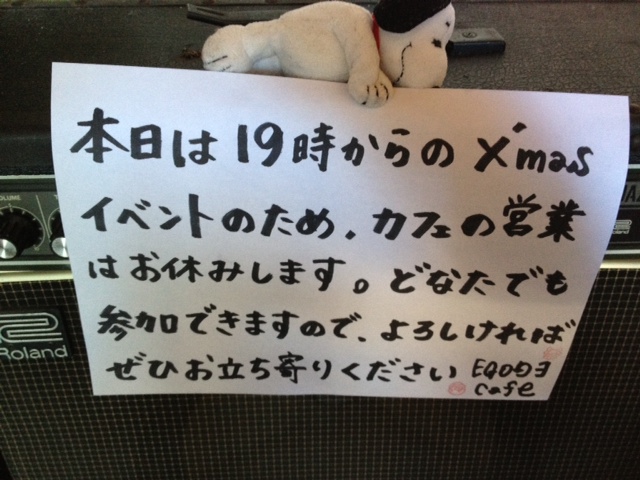 本日は19時からのX'mas
イベントのため、カフェの営業
はお休みします。どなたでも
参加できますので、よろしければ
ぜひお立ち寄りください
cafe
VOLUME
Roland